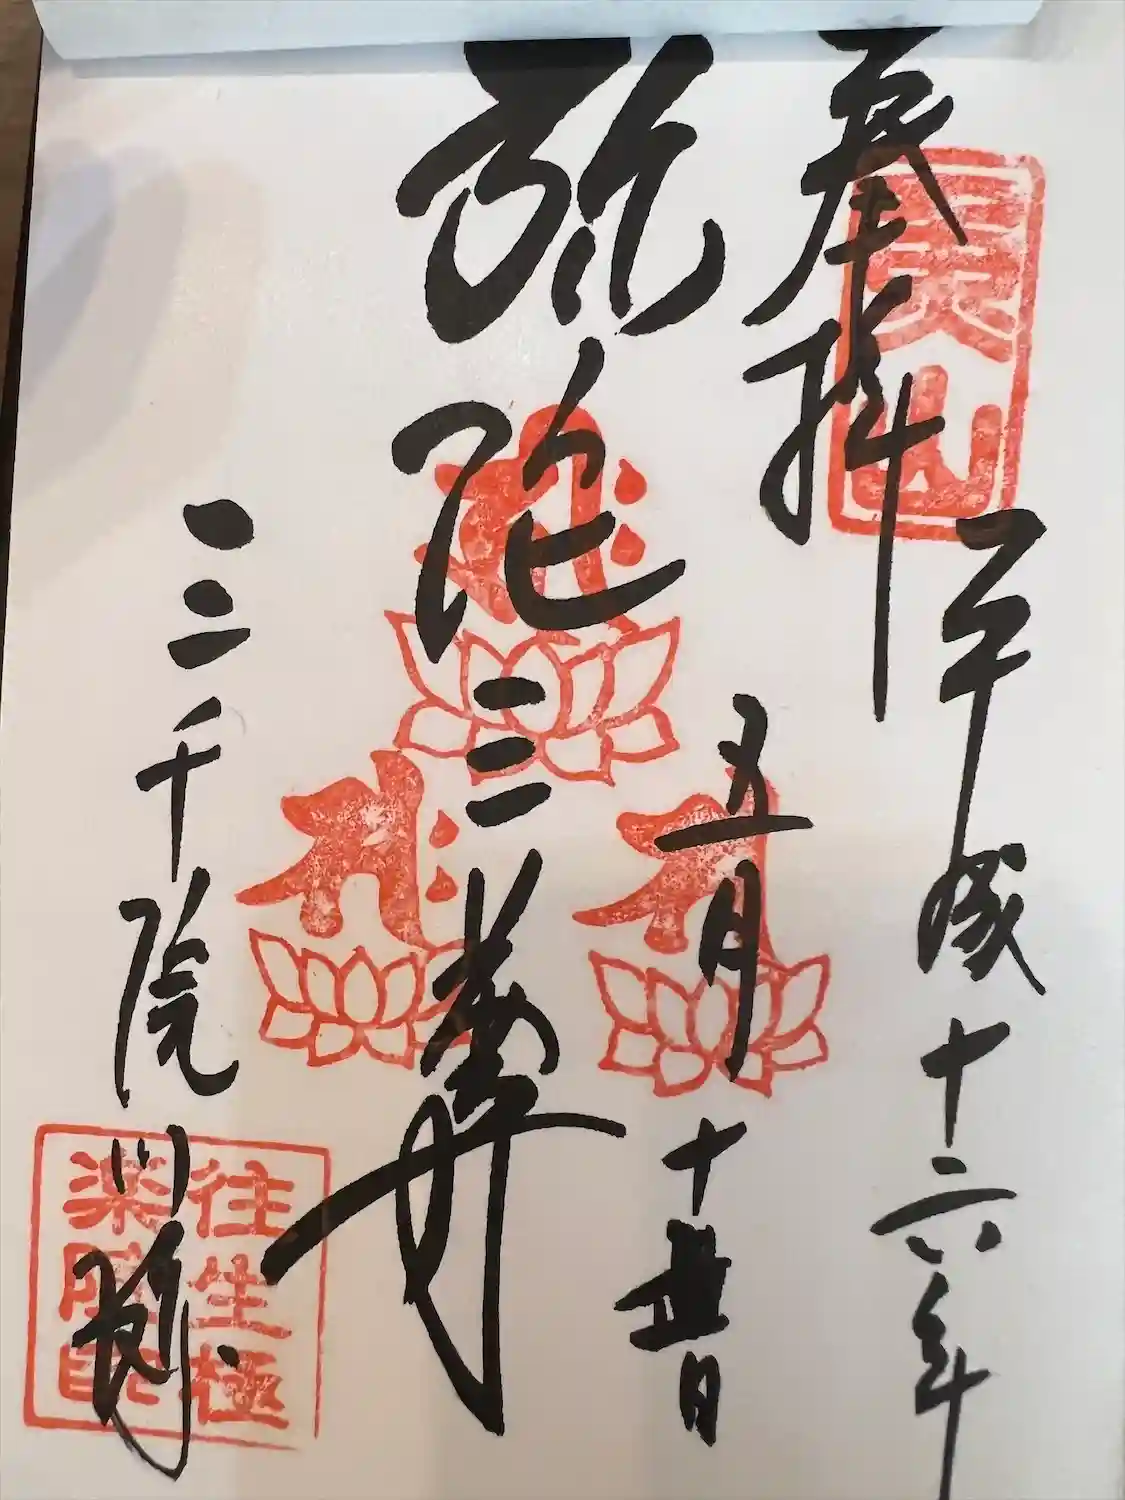 奉拝
魚山
平成十六年
五月十 日
弥陀三尊
三千院門跡
往生極
楽院印